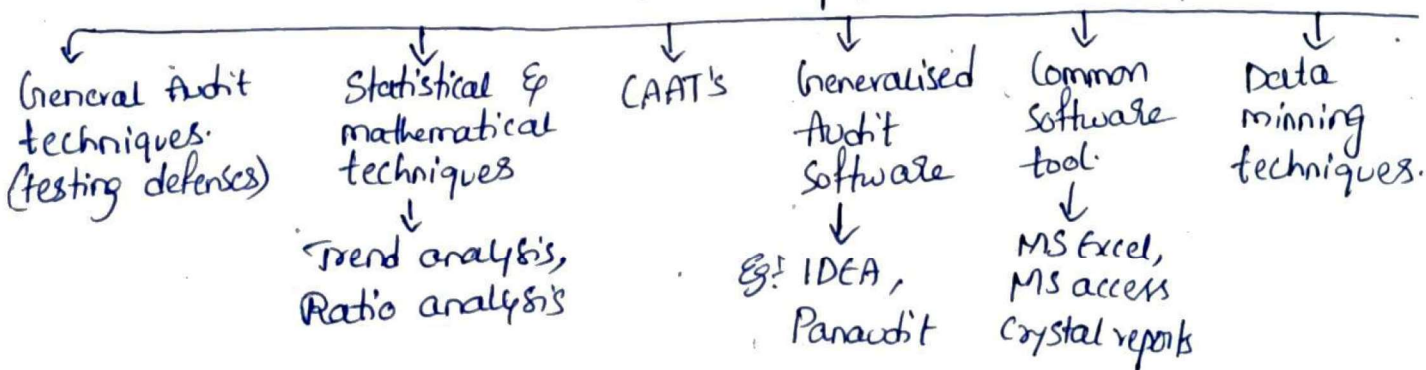 General Audit
techniques.
(testing defenses)
Statistical &
mathematical
techniques
Trend analysis,
Ratio analysis
CAAT's
Generalised
Audit
Software
Eg: IDEA,
Panaudit
Common
Software
tool.
MS Excel,
MS access
Crystal reports
Data
minning
techniques.